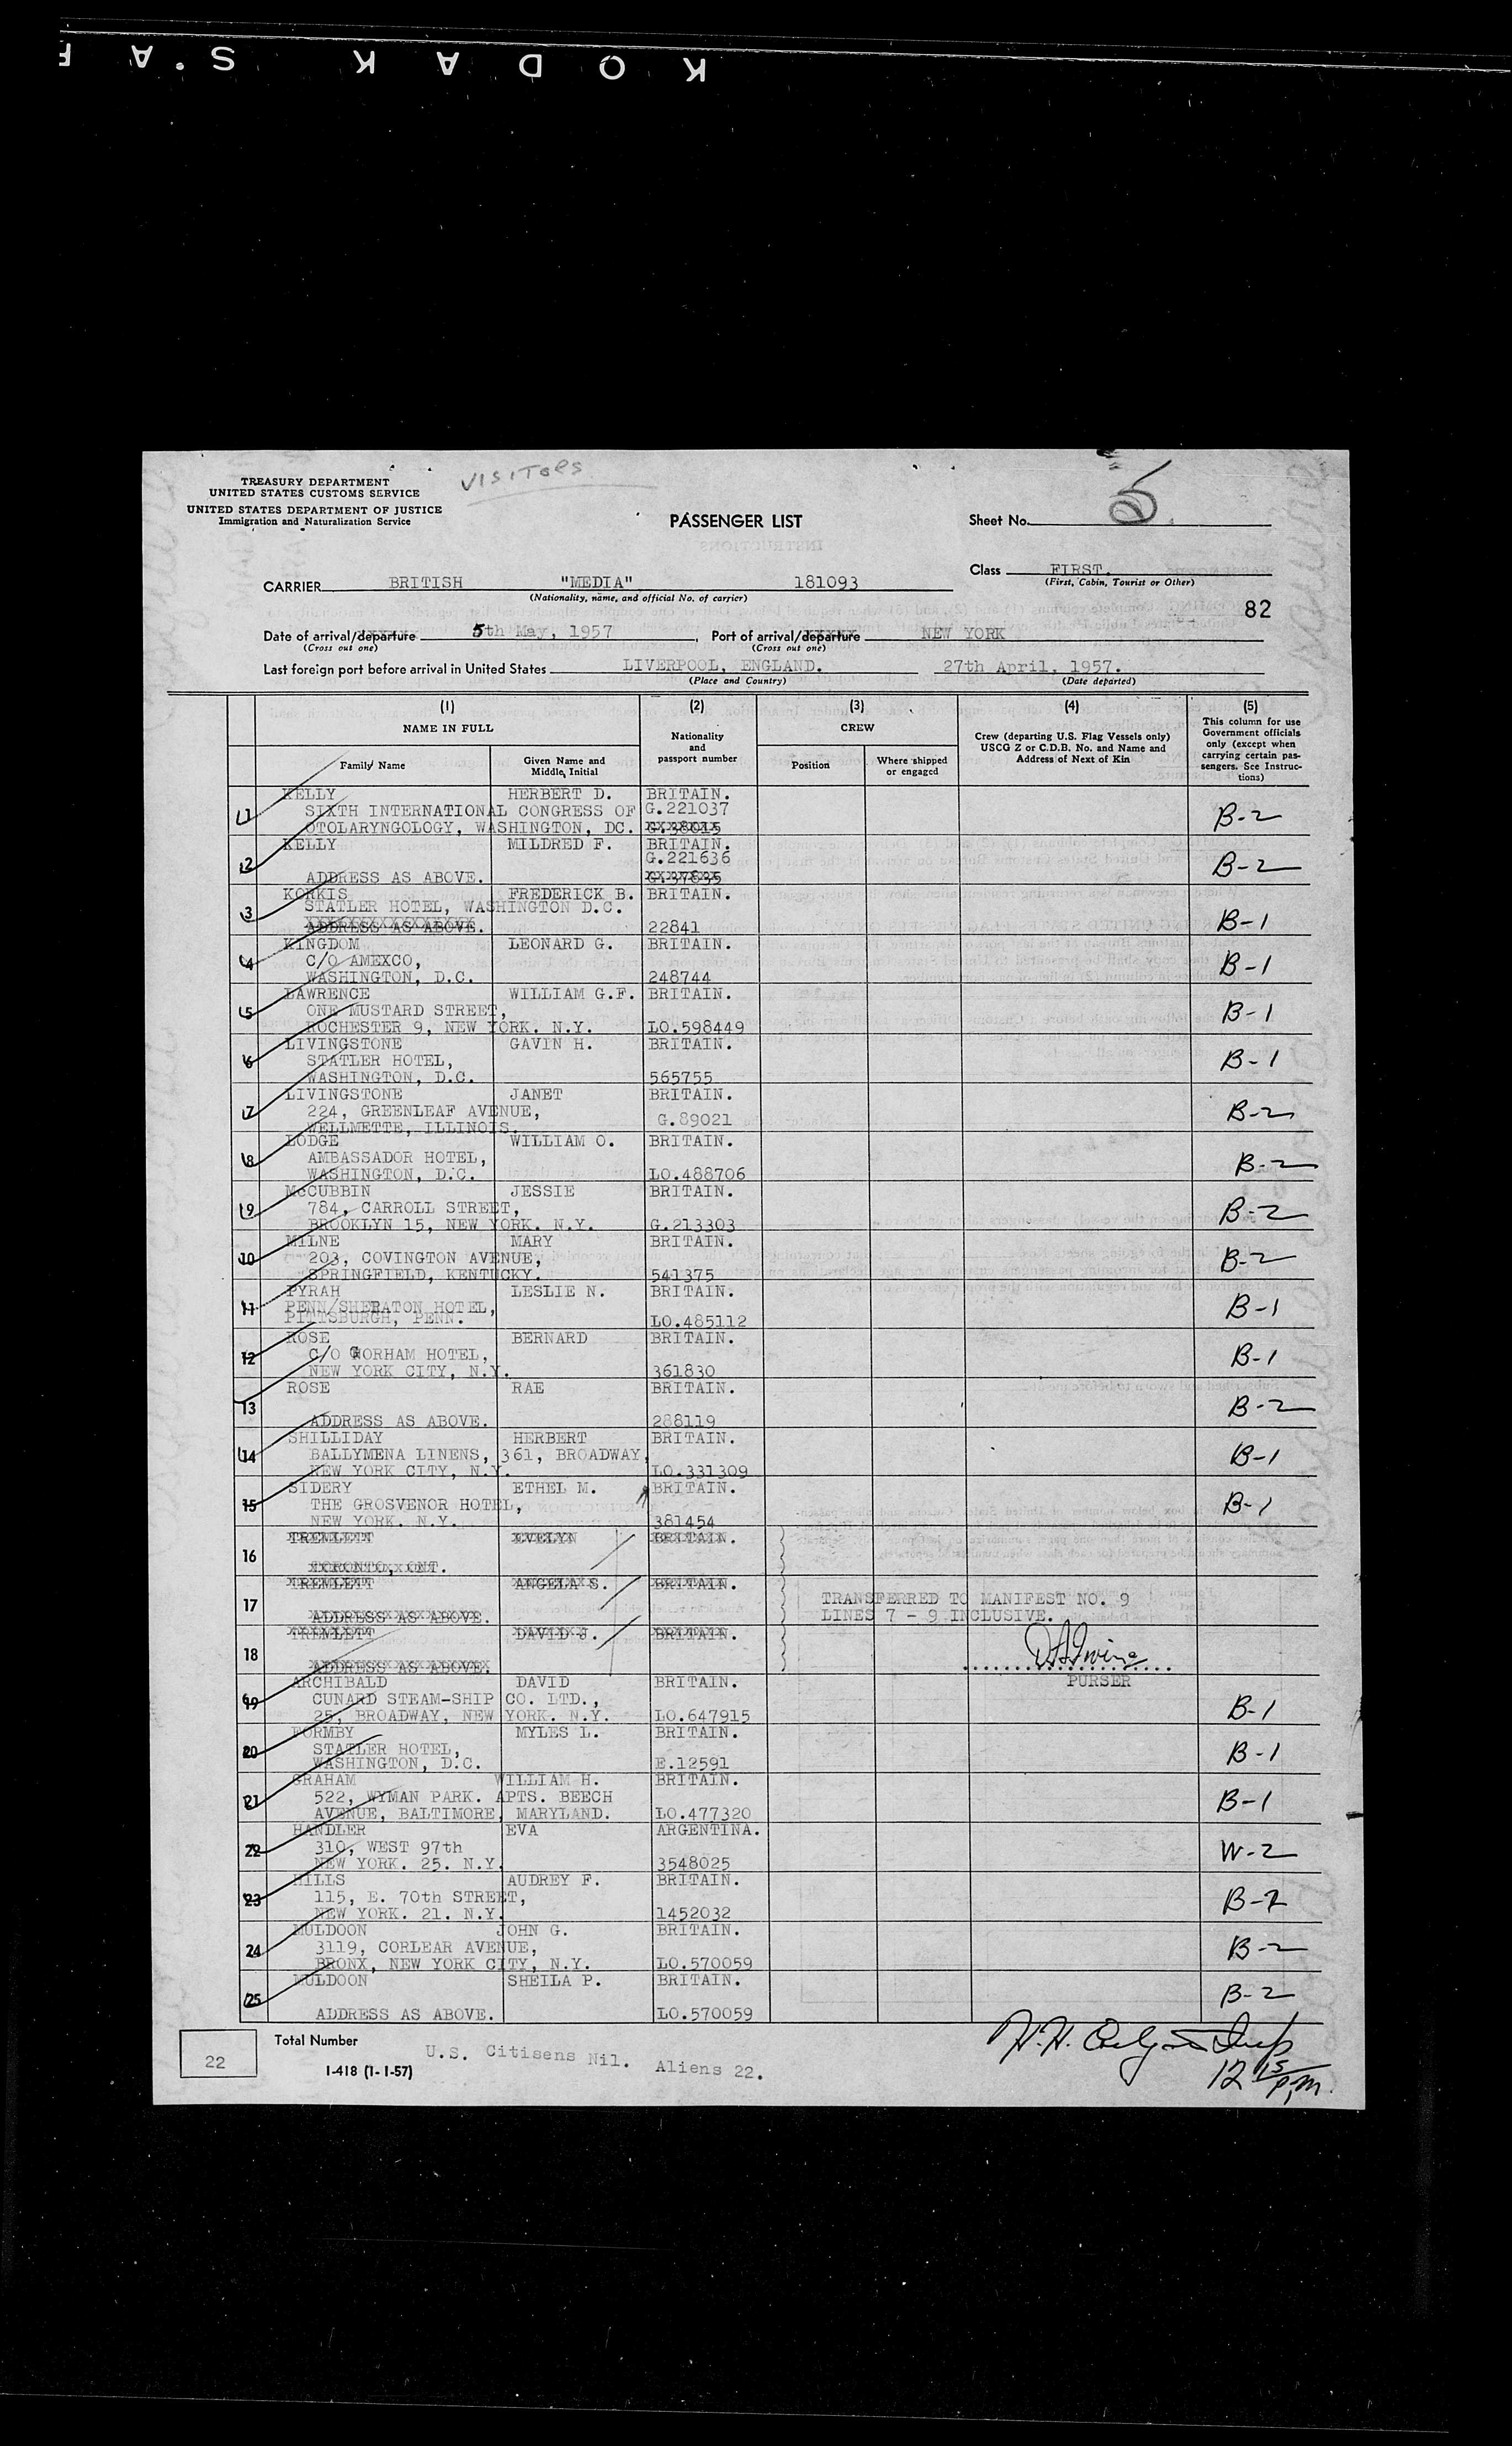 KODAK S.A F
VISITORS
TREASURY DEPARTMENT
UNITED STATES CUSTOMS SERVICE
UNITED STATES DEPARTMENT OF JUSTICE
Immigration and Naturalization Service
PASSENGER LIST
Sheet No. 5
Class FIRST.
(First, Cabin, Tourist or Other)
CARRIER BRITISH "MEDIA" 181093
(Nationality, name, and official No. of carrier)
82
Date of arrival/departure 5th May, 1957, Port of arrival/departure NEW YORK
(Cross out one) (Cross out one)
Last foreign port before arrival in United States LIVERPOOL, ENGLAND. 27th April, 1957.
(Place and Country) (Date departed)
(1) (2) (3) (4) (5)
NAME IN FULL
Nationality and passport number
CREW
Crew (departing U.S. Flag Vessels only) USCG Z or C.D.B. No. and Name and Address of Next of Kin
This column for use Government officials only (except when carrying certain passengers. See Instructions)
Family Name Given Name and Middle Initial Position Where shipped or engaged
1 KELLY HERBERT D. BRITAIN.
SIXTH INTERNATIONAL CONGRESS OF G.221037 B-2
OTOLARYNGOLOGY, WASHINGTON, DC. G.38015
2 KELLY MILDRED F. BRITAIN.
G.221636 B-2
ADDRESS AS ABOVE.
3 KORKIS FREDERICK B. BRITAIN.
STATLER HOTEL, WASHINGTON D.C.
ADDRESS AS ABOVE. 22841 B-1
4 KINGDOM LEONARD G. BRITAIN.
C/O AMEXCO, B-1
WASHINGTON, D.C. 248744
5 LAWRENCE WILLIAM G.F. BRITAIN.
ONE MUSTARD STREET, B-1
ROCHESTER 9, NEW YORK. N.Y. LO.598449
6 LIVINGSTONE GAVIN H. BRITAIN.
STATLER HOTEL, B-1
WASHINGTON, D.C. 565755
7 LIVINGSTONE JANET BRITAIN.
224, GREENLEAF AVENUE, G.89021 B-2
WELLMETTE, ILLINOIS.
8 LODGE WILLIAM O. BRITAIN.
AMBASSADOR HOTEL, B-2
WASHINGTON, D.C. LO.488706
9 McCUBBIN JESSIE BRITAIN.
784, CARROLL STREET, B-2
BROOKLYN 15, NEW YORK. N.Y. G.213303
10 MILNE MARY BRITAIN.
203, COVINGTON AVENUE, B-2
SPRINGFIELD, KENTUCKY. 541375
11 PYRAH LESLIE N. BRITAIN.
PENN/SHERATON HOTEL, B-1
PITTSBURGH, PENN. LO.485112
12 ROSE BERNARD BRITAIN.
C/O GORHAM HOTEL, B-1
NEW YORK CITY, N.Y. 361830
13 ROSE RAE BRITAIN.
B-2
ADDRESS AS ABOVE. 288119
14 SHILLIDAY HERBERT BRITAIN.
BALLYMENA LINENS, 361, BROADWAY, B-1
NEW YORK CITY, N.Y. LO.331309
15 SIDERY ETHEL M. BRITAIN.
THE GROSVENOR HOTEL, B-1
NEW YORK. N.Y. 381454
16 TREMLETT EVELYN BRITAIN.
TORONTO, ONT.
17 TREMLETT ANGELA S. BRITAIN.
TRANSFERRED TO MANIFEST NO. 9
ADDRESS AS ABOVE. LINES 7 - 9 INCLUSIVE.
18 TREMLETT DAVID J. BRITAIN.
ADDRESS AS ABOVE.
PURSER
19 ARCHIBALD DAVID BRITAIN.
CUNARD STEAM-SHIP CO. LTD., B-1
25, BROADWAY, NEW YORK. N.Y. LO.647915
20 FORMBY MYLES L. BRITAIN.
STATLER HOTEL, B-1
WASHINGTON, D.C. E.12591
21 GRAHAM WILLIAM H. BRITAIN.
522, WYMAN PARK. APTS. BEECH B-1
AVENUE, BALTIMORE, MARYLAND. LO.477320
22 HANDLER EVA ARGENTINA.
310, WEST 97th W-2
NEW YORK. 25. N.Y. 3548025
23 HILLS AUDREY F. BRITAIN.
115, E. 70th STREET, B-2
NEW YORK. 21. N.Y. 1452032
24 MULDOON JOHN G. BRITAIN.
3119, CORLEAR AVENUE, B-2
BRONX, NEW YORK CITY, N.Y. LO.570059
25 MULDOON SHEILA P. BRITAIN.
B-2
ADDRESS AS ABOVE. LO.570059
22 Total Number U.S. Citisens Nil. Aliens 22.
I-418 (1-1-57)
12 15 p.m.